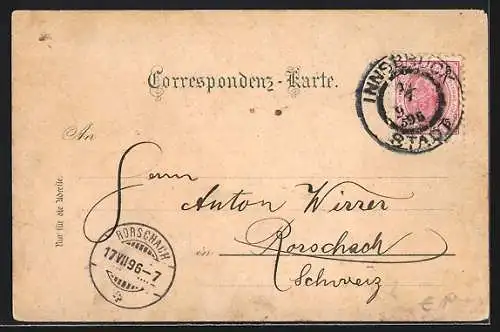 Correspondenz-Karte.
INNSBRUCK
STADT
An
Herrn
Anton Wirrer
in Rorschach
Schweiz
Nur für die Adresse.
RORSCHACH
17 VII 96-7